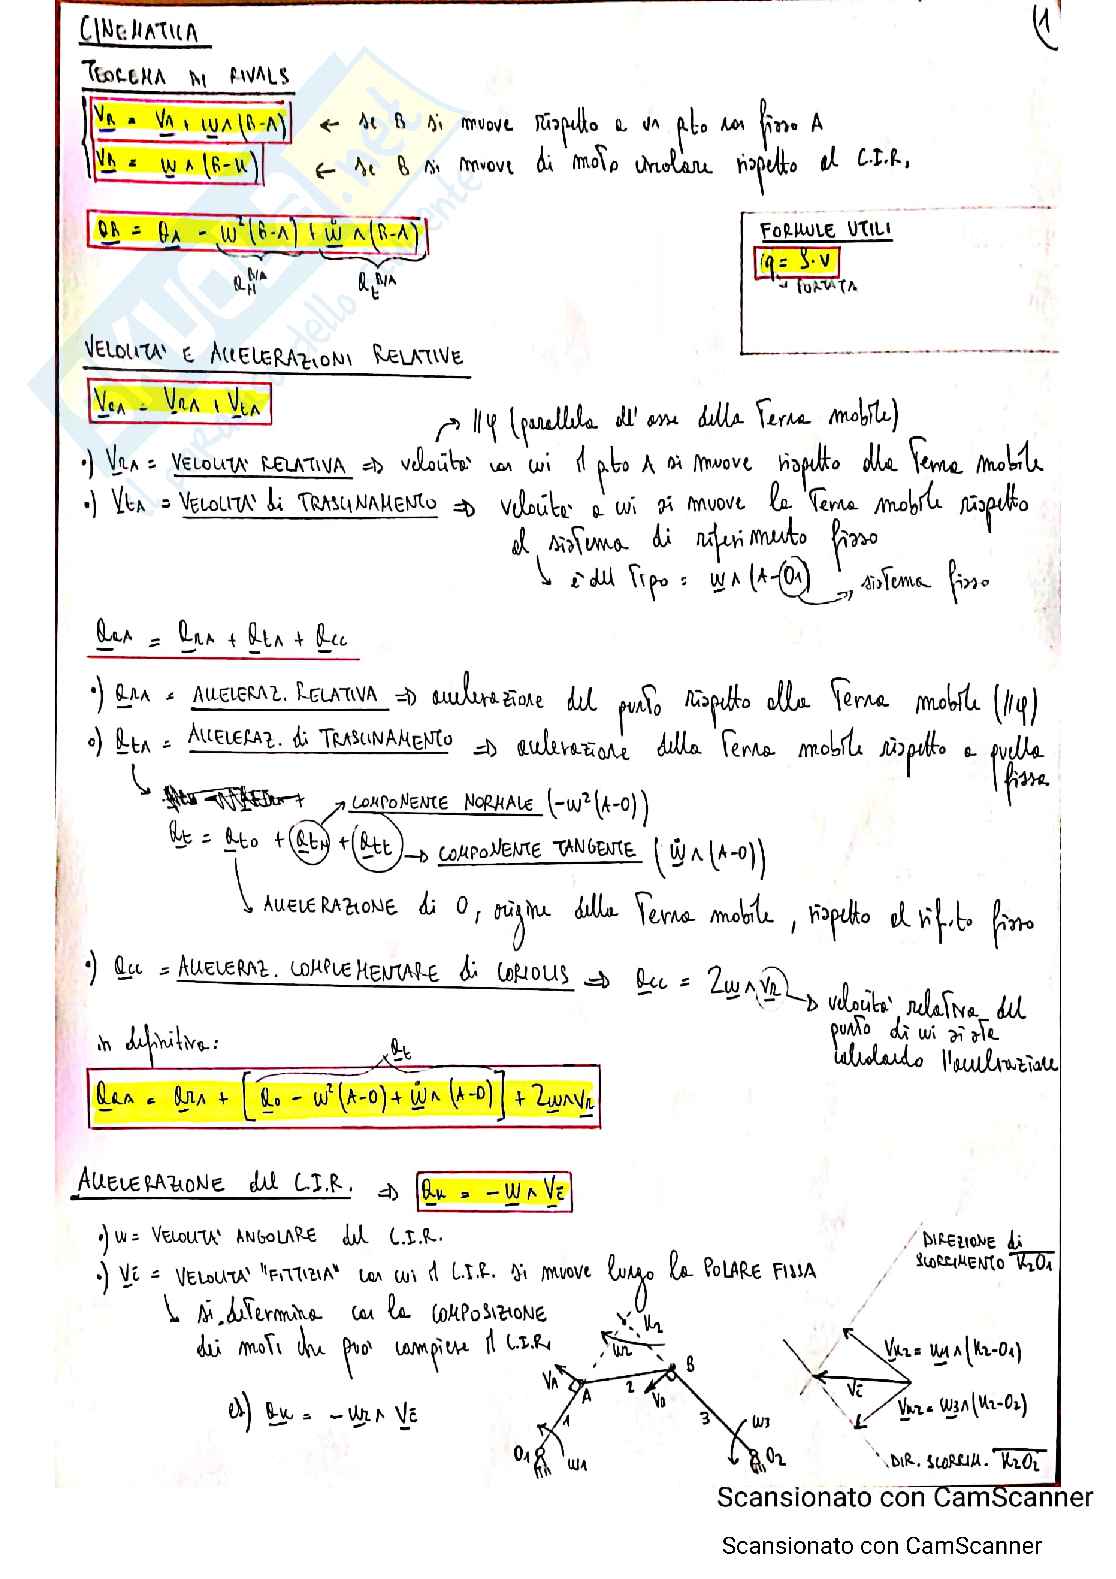 CINEMATICA
1
TEOREMA DI RIVALS
V_B = V_A + ω∧(B-A) ← se B si muove rispetto a un pto non fisso A
V_B = ω∧(B-K) ← se B si muove di moto circolare rispetto al C.I.R.
a_B = a_A - ω²(B-A) + ω̇∧(B-A)
a_N^B/A a_t^B/A
FORMULE UTILI
q = S·V
→ PORTATA
VELOCITA' E ACCELERAZIONI RELATIVE
V_aA = V_rA + V_tA
→ //φ (parallela all'asse della Terna mobile)
•) V_rA = VELOCITA' RELATIVA ⇒ velocita' con cui il pto A si muove rispetto alla Terna mobile
•) V_tA = VELOCITA' di TRASCINAMENTO ⇒ velocita' a cui si muove la Terna mobile rispetto
al sistema di riferimento fisso
↳ è del Tipo = ω∧(A-O1) → sistema fisso
a_aA = a_rA + a_tA + a_cc
•) a_rA = ACCELERAZ. RELATIVA ⇒ accelerazione del punto rispetto alla Terna mobile (//φ)
•) a_tA = ACCELERAZ. di TRASCINAMENTO ⇒ accelerazione della Terna mobile rispetto a quella
fissa
→ COMPONENTE NORMALE (-ω²(A-O))
a_t = a_tO + a_tN + a_tt → COMPONENTE TANGENTE (ω̇∧(A-O))
↳ ACCELERAZIONE di O, origine della Terna mobile, rispetto al rif.to fisso
•) a_cc = ACCELERAZ. COMPLEMENTARE di CORIOLIS ⇒ a_cc = 2ω∧V_r → velocita' relativa del
punto di cui si sta
calcolando l'accelerazione
in definitiva:
a_t
a_aA = a_rA + [a_O - ω²(A-O) + ω̇∧(A-O)] + 2ω∧V_r
ACCELERAZIONE del C.I.R. ⇒ a_K = -ω∧V_c
•) ω = VELOCITA' ANGOLARE del C.I.R.
•) V_c = VELOCITA' "FITTIZIA" con cui il C.I.R. si muove lungo la POLARE FISSA
↳ si determina con la COMPOSIZIONE
dei moti che puo' compiere il C.I.R.
es) a_K = -ω2∧V_c
K2
ω2
V_A
A
2
B
V_B
1
3
O1
ω1
ω3
O2
DIREZIONE di
SCORRIMENTO K2O1
V_K2 = ω1∧(K2-O1)
V_c
V_K2 = ω3∧(K2-O2)
DIR. SCORRIM. K2O2
Scansionato con CamScanner
Scansionato con CamScanner